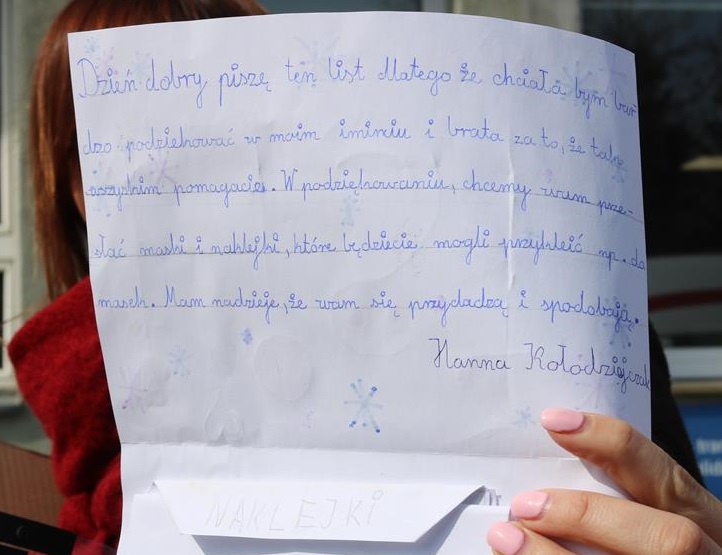 Dzień dobry piszę ten list dlatego że chciała bym bar
dzo podziękować w moim iminiu i brata za to, że tak
wszystkim pomagacie. W podziękowaniu, chcemy wam prze-
słać maski i naklejki, które będziecie mogli przykleić np. do
masek. Mam nadzieje, że wam się przydadzą i spodobają.
Hanna Kołodziejczak
NAKLEJKI